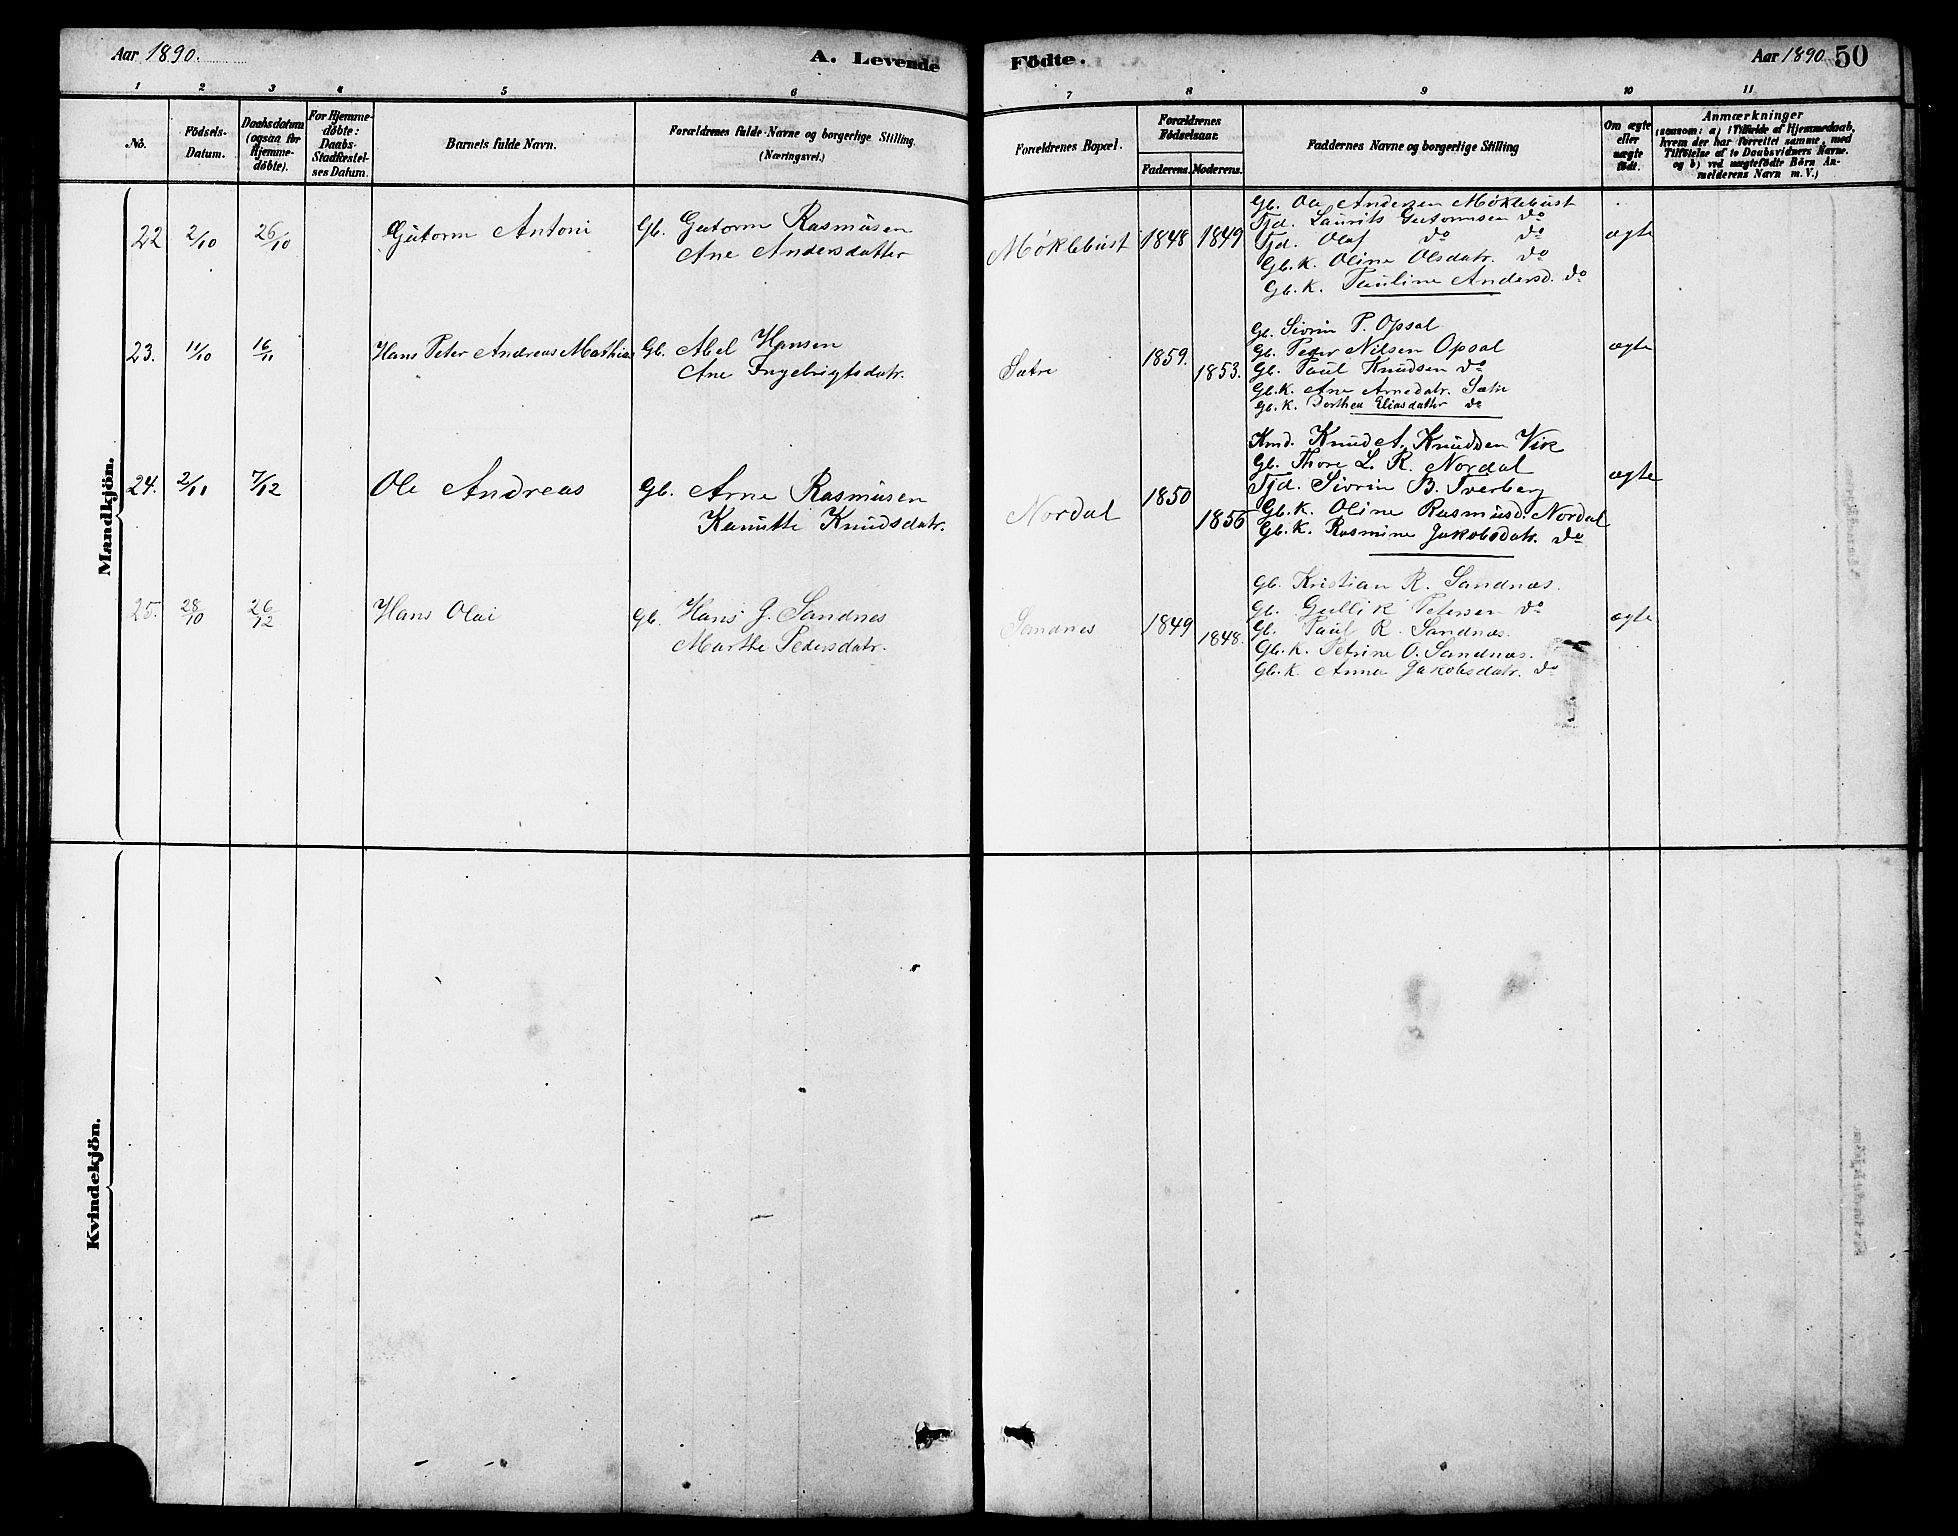 Aar 1890.
A. Levende
Födte.
Aar 1890
50
1 2 3 4 5 6 7 8 9 10 11
No.
Födsels-
Datum.
Daabsdatum
(ogsaa for
Hjemme-
döbte).
For Hjemme-
döbte:
Daabs-
Stadfæstel-
ses Datum.
Barnets fulde Navn.
Forældrenes fulde Navne og borgerlige Stilling.
(Næringsvei.)
Forældrenes Bopæl.
Forældrenes
Födselsaar.
Faderens. Moderens.
Faddernes Navne og borgerlige Stilling
Om ægte
eller
uægte
födt.
Anmærkninger
(saasom: a) i Tilfælde af Hjemmedaab,
hvem der har forrettet samme, med
Tilföielse af to Daabsvidners Navne.
og b) ved uægtefödte Börn An-
melderens Navn m. V.)
Mandkjön.
22 2/10 26/10 Gutorm Antoni
Gb. Gutorm Rasmusen
Ane Andersdatter
Möklebust 1848 1849
Gb. Ole Andersen Möklebust
Tjd. Laurits Gutormsen do
Tjd. Olaf do do
Gb.K. Oline Olsdatr. do
Gb.K. Pauline Andersd. do
ægte
23. 11/10 16/11 Hans Peter Andreas Mathias
Gb. Abel Hansen
Ane Ingebrigtsdatr.
Sætre 1859. 1853.
Gb. Sivrin P. Opsal
Gb. Peder Nilsen Opsal
Gb. Paul Knudsen do
Gb.K. Ane Arnedatr. Sætre
Gb.K. Dorthea Eliasdatter do
ægte
24. 2/11 7/12 Ole Andreas
Gb. Arne Rasmusen
Kanutte Knudsdatr.
Nordal 1850 1856
Kmd. Knud A. Knudsen Vik
Gb. Thore L. R. Nordal
Tjd. Sivrin B. Tverberg
Gb.K. Oline Rasmusd. Nordal
Gb.K. Rasmine Jakobsdatr. do
ægte
25. 28/10 26/12 Hans Olai
Gb. Hans J. Sandnes
Marthe Pedersdatr.
Sandnes 1849 1848.
Gb. Kristian R. Sandnæs.
Gb. Gullik Petersen do
Gb. Paul R. Sandnæs.
Gb.K. Petrine O. Sandnæs.
Gb.K. Anna Jakobsdatr. do
ægte
Kvindekjön.